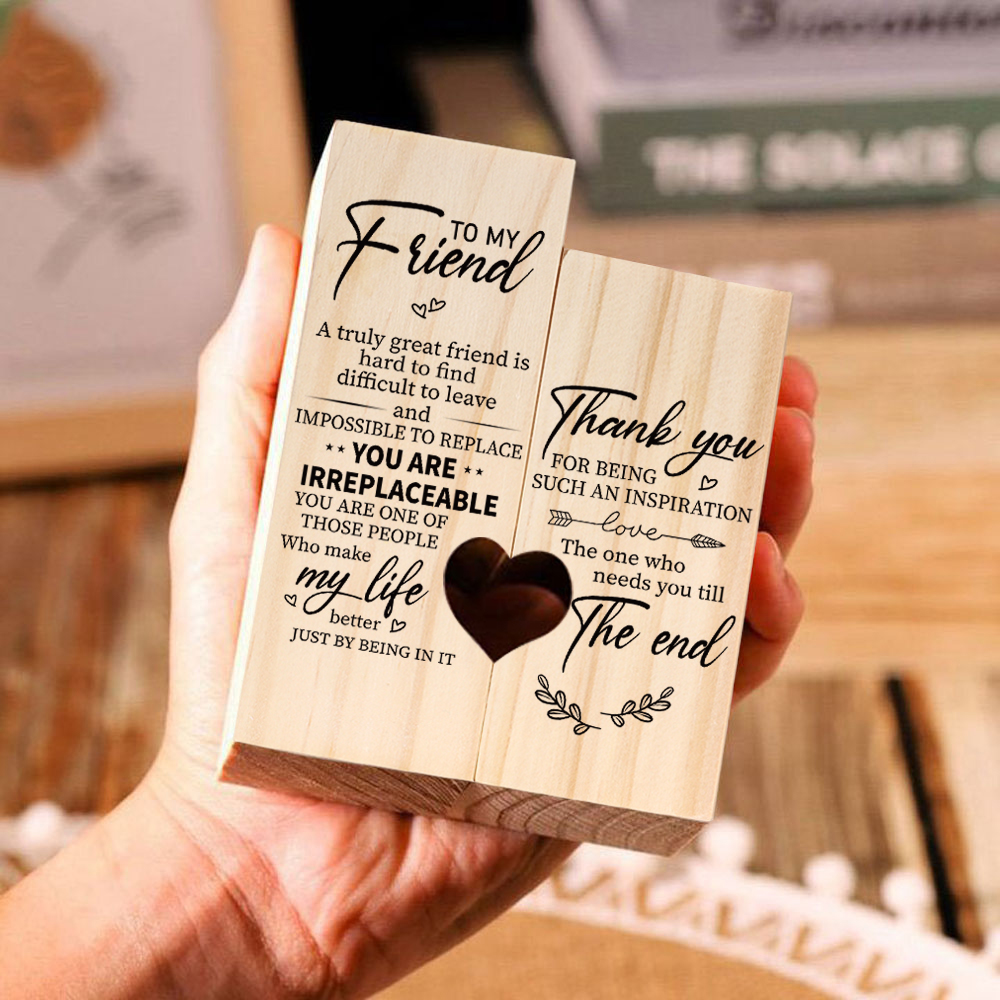 TO MY
Friend
A truly great friend is
hard to find
difficult to leave
and
IMPOSSIBLE TO REPLACE
YOU ARE
IRREPLACEABLE
YOU ARE ONE OF
THOSE PEOPLE
Who make
my life
better
JUST BY BEING IN IT
Thank you
FOR BEING
SUCH AN INSPIRATION
love
The one who
needs you till
The end
THE SOLACE